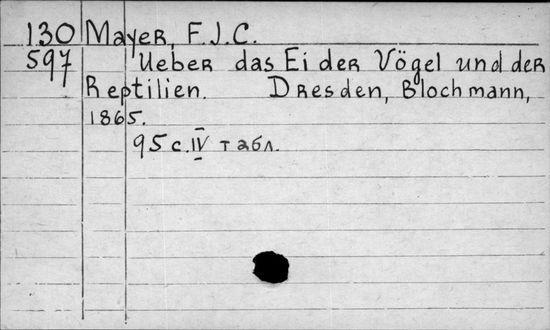 130 Mayer, F.J.C.
597 Ueber das Ei der Vögel und der
Reptilien. Dresden, Blochmann,
1865.
95 с. IV табл.